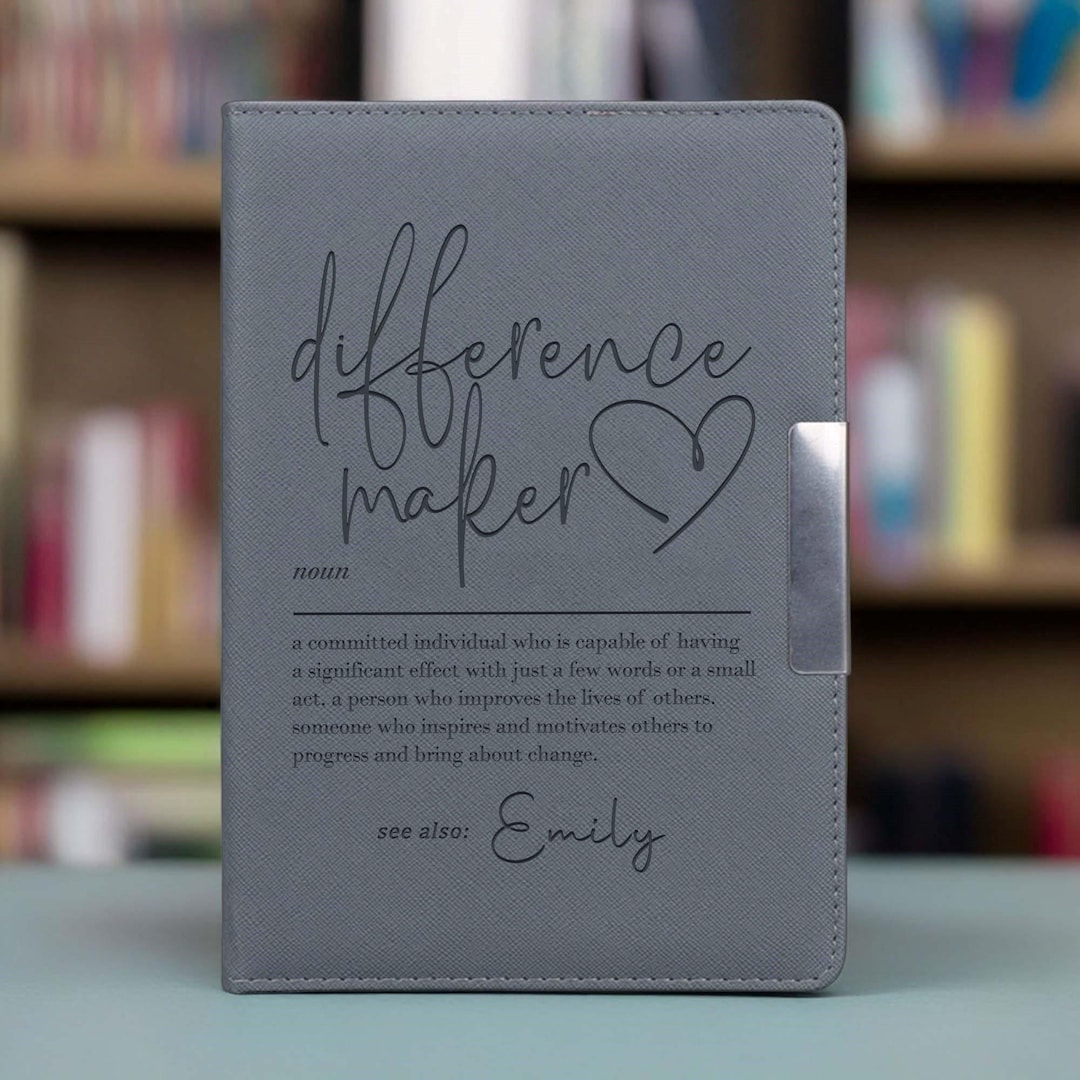 difference
maker
noun
a committed individual who is capable of having
a significant effect with just a few words or a small
act. a person who improves the lives of others.
someone who inspires and motivates others to
progress and bring about change.
see also: Emily